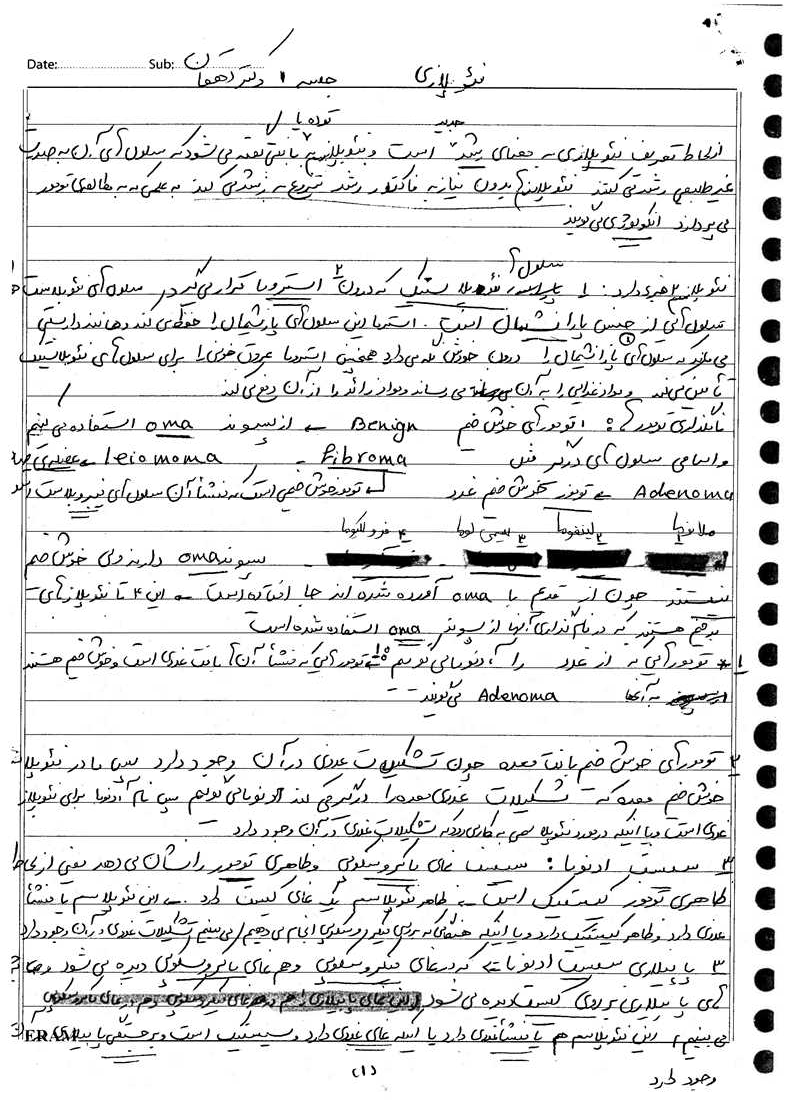 Date: Sub:
نئوپلازی جلسه ۱ دکتر دهقان
جدید توده یا
از لحاظ تعریف نئوپلازی به معنای رشد است و نئوپلازیم با بافتی گفته می شود که سلول های آن به صورت
غیر طبیعی رشد می کنند نئوپلازیم بدون نیاز به فاکتور رشد شروع به رشد می کند به علمی که به مطالعه ی تومور
می پردازد انکولوژی می گویند
سلول های
نئوپلازیم ۲ جزء دارد: ۱ نئوپلاستیک که درون ۲ استروما قرار می گیرد سلول های نئوپلاست
سلول هایی از جنس پارانشیمال است. استروما این سلول های پارانشیمال را حفظ می کند و مانند داربستی
می ماند که سلول های پارانشیمال را درون خودش نگه می دارد همچنین استروما عروق خونی را برای سلول های نئوپلاستیک
تأمین می کند و مواد غذایی را به آن می رساند و مواد زائد را از آن دفع می کند
نامگذاری تومور ها: تومور های خوش خیم Benign ← از پسوند oma استفاده می کنیم
و اسامی سلول های درگیر مثل Fibroma - Leiomoma ← عضله ی
Adenoma ← تومور خوش خیم غدد ← تومور خوش خیمی است که منشأ آن سلول های فیبروبلاست
ملانوما ۲ لنفوما ۳ ۴
پسوند oma دارند ولی خوش خیم
نیستند چون از قدیم با oma آورده شده اند جا افتاده است ← این ۴ تا نئوپلازی های
بدخیم هستند که در نام گذاری آنها از پسوند oma استفاده شده است
۱* تومور هایی که از غدد را آدنوما می گوییم تومور هایی که منشأ آن ها بافت غددی است و خوش خیم هستند
به آنها Adenoma می گویند
۲ تومور های خوش خیم بافت معده چون تشکیلات غددی در آن وجود دارد پس ما در نئوپلا
خوش خیم معده که تشکیلات غددی معده را درگیر می کند آدنوما می گوییم پس نام آدنوما برای نئوپلاز
غددی است و یا اینکه در مورد نئوپلاسمی به کار می رود که تشکیلات غددی در آن وجود دارد
۳ سیست ادنوما: سیست نمای ماکروسکوپی و ظاهری تومور را نشان می دهد یعنی از لحاظ
ظاهری تومور کیستیک است ← ظاهر نئوپلاسم یک نمای کیست دارد. ← این نئوپلاسم یا منشأ
غددی دارد و ظاهر کیستیک دارد و یا اینکه هنگامی که بررسی میکروسکوپی انجام می دهیم می بینیم تشکیلات غددی در آن وجود دارد
۳ پاپیلاری سیست ادنوما ← که در نمای میکروسکوپی و هم نمای ماکروسکوپی دیده می شود
های پاپیلاری بر روی کیست دیده می شود
می بینیم، این نئوپلاسم هم یا منشأ غددی دارد یا اینکه نمای غددی دارد و سیستیک است و برجستگی پاپیلاری
ERAM
(۱)
وجود دارد